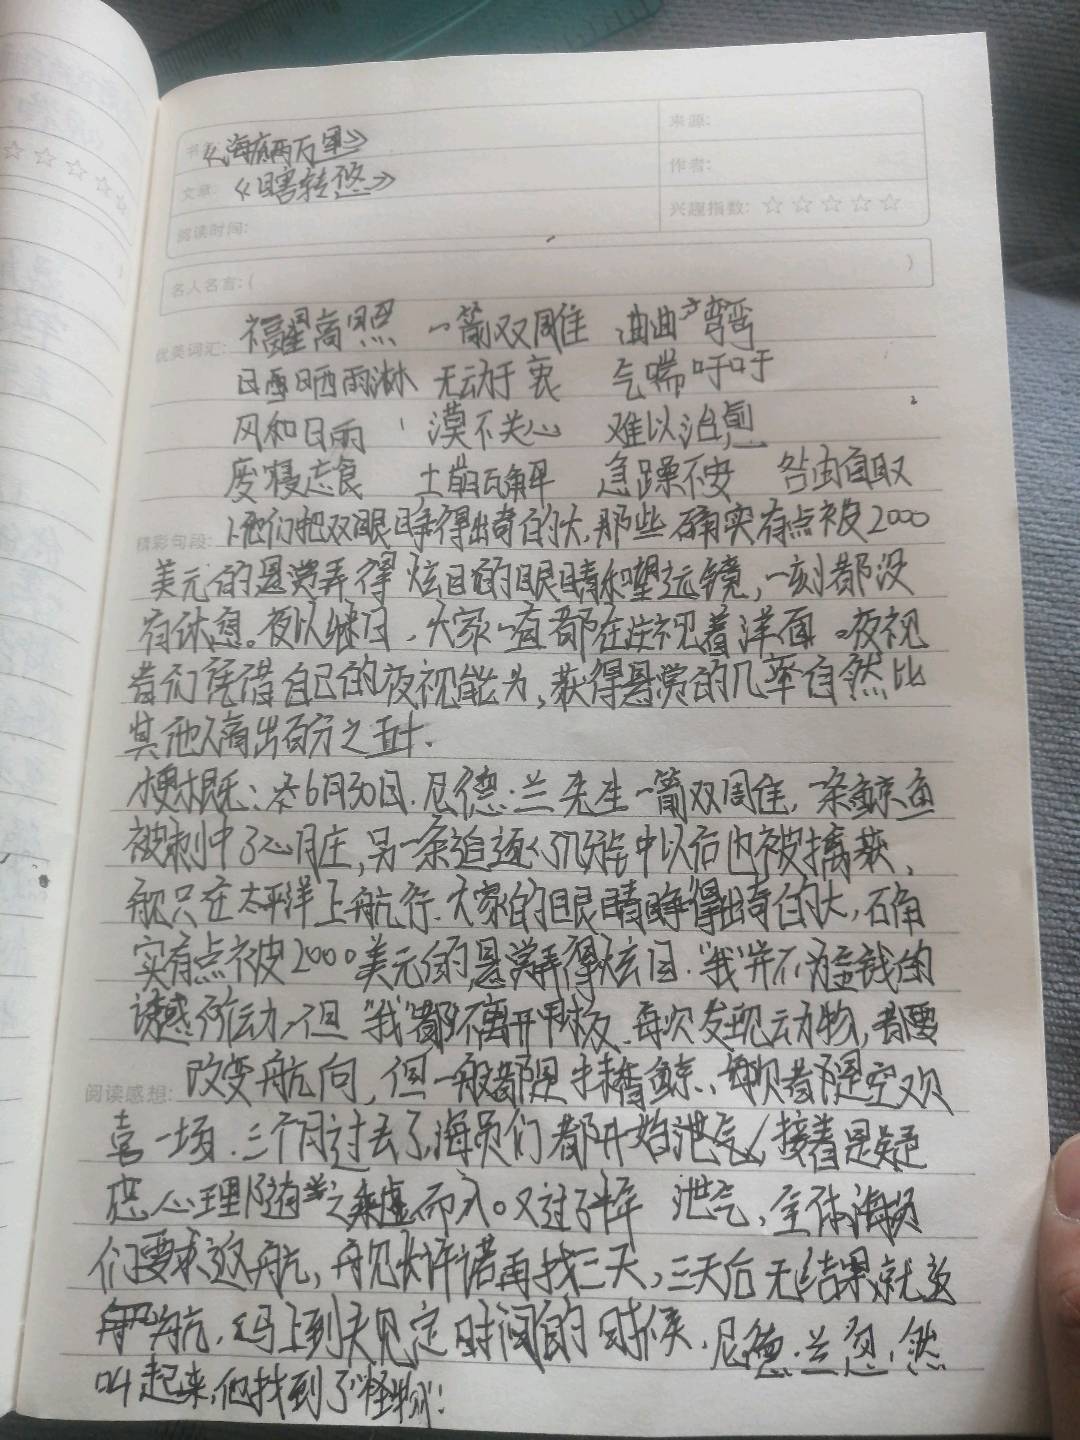 书名:《海底两万里》
来源:
文章:《瞎转悠》
作者:
阅读时间:
兴趣指数: ☆☆☆☆☆
名人名言:( )
优美词汇: 福星高照 一箭双雕 曲曲弯弯
日晒雨淋 无动于衷 气喘吁吁
风和日丽 漠不关心 难以治愈
废寝忘食 土崩瓦解 急躁不安 咎由自取
精彩句段: 1、他们把双眼睁得出奇的大,那些确实有点被2000
美元的悬赏弄得炫目的眼睛和望远镜,一刻都没
有休息。夜以继日,大家一直都在注视着洋面。夜视
者们凭借自己的夜视能力,获得悬赏的几率自然比
其他人高出百分之五十.
梗概:在6月30日.尼德·兰先生一箭双雕,一条鲸鱼
被刺中了心脏,另一条追逐几分钟以后也被擒获,
船只在太平洋上航行.大家的眼睛睁得出奇的大,确
实有点被2000美元的悬赏弄得炫目."我"并不为金钱的
诱惑所动,但"我"都不离开甲板.每次发现动物,都要
阅读感想: 改变航向,但一般都是抹香鲸、每次都是空欢
喜一场.三个月过去了,海员们都开始泄气,接着是疑
虑心理随之乘虚而入。又过了半年 泄气,全体海员
们要求返航,船长许诺再找三天,三天后无结果就返
航,马上到规定时间的时候.尼德·兰忽然
叫起来,他找到了"怪物"!